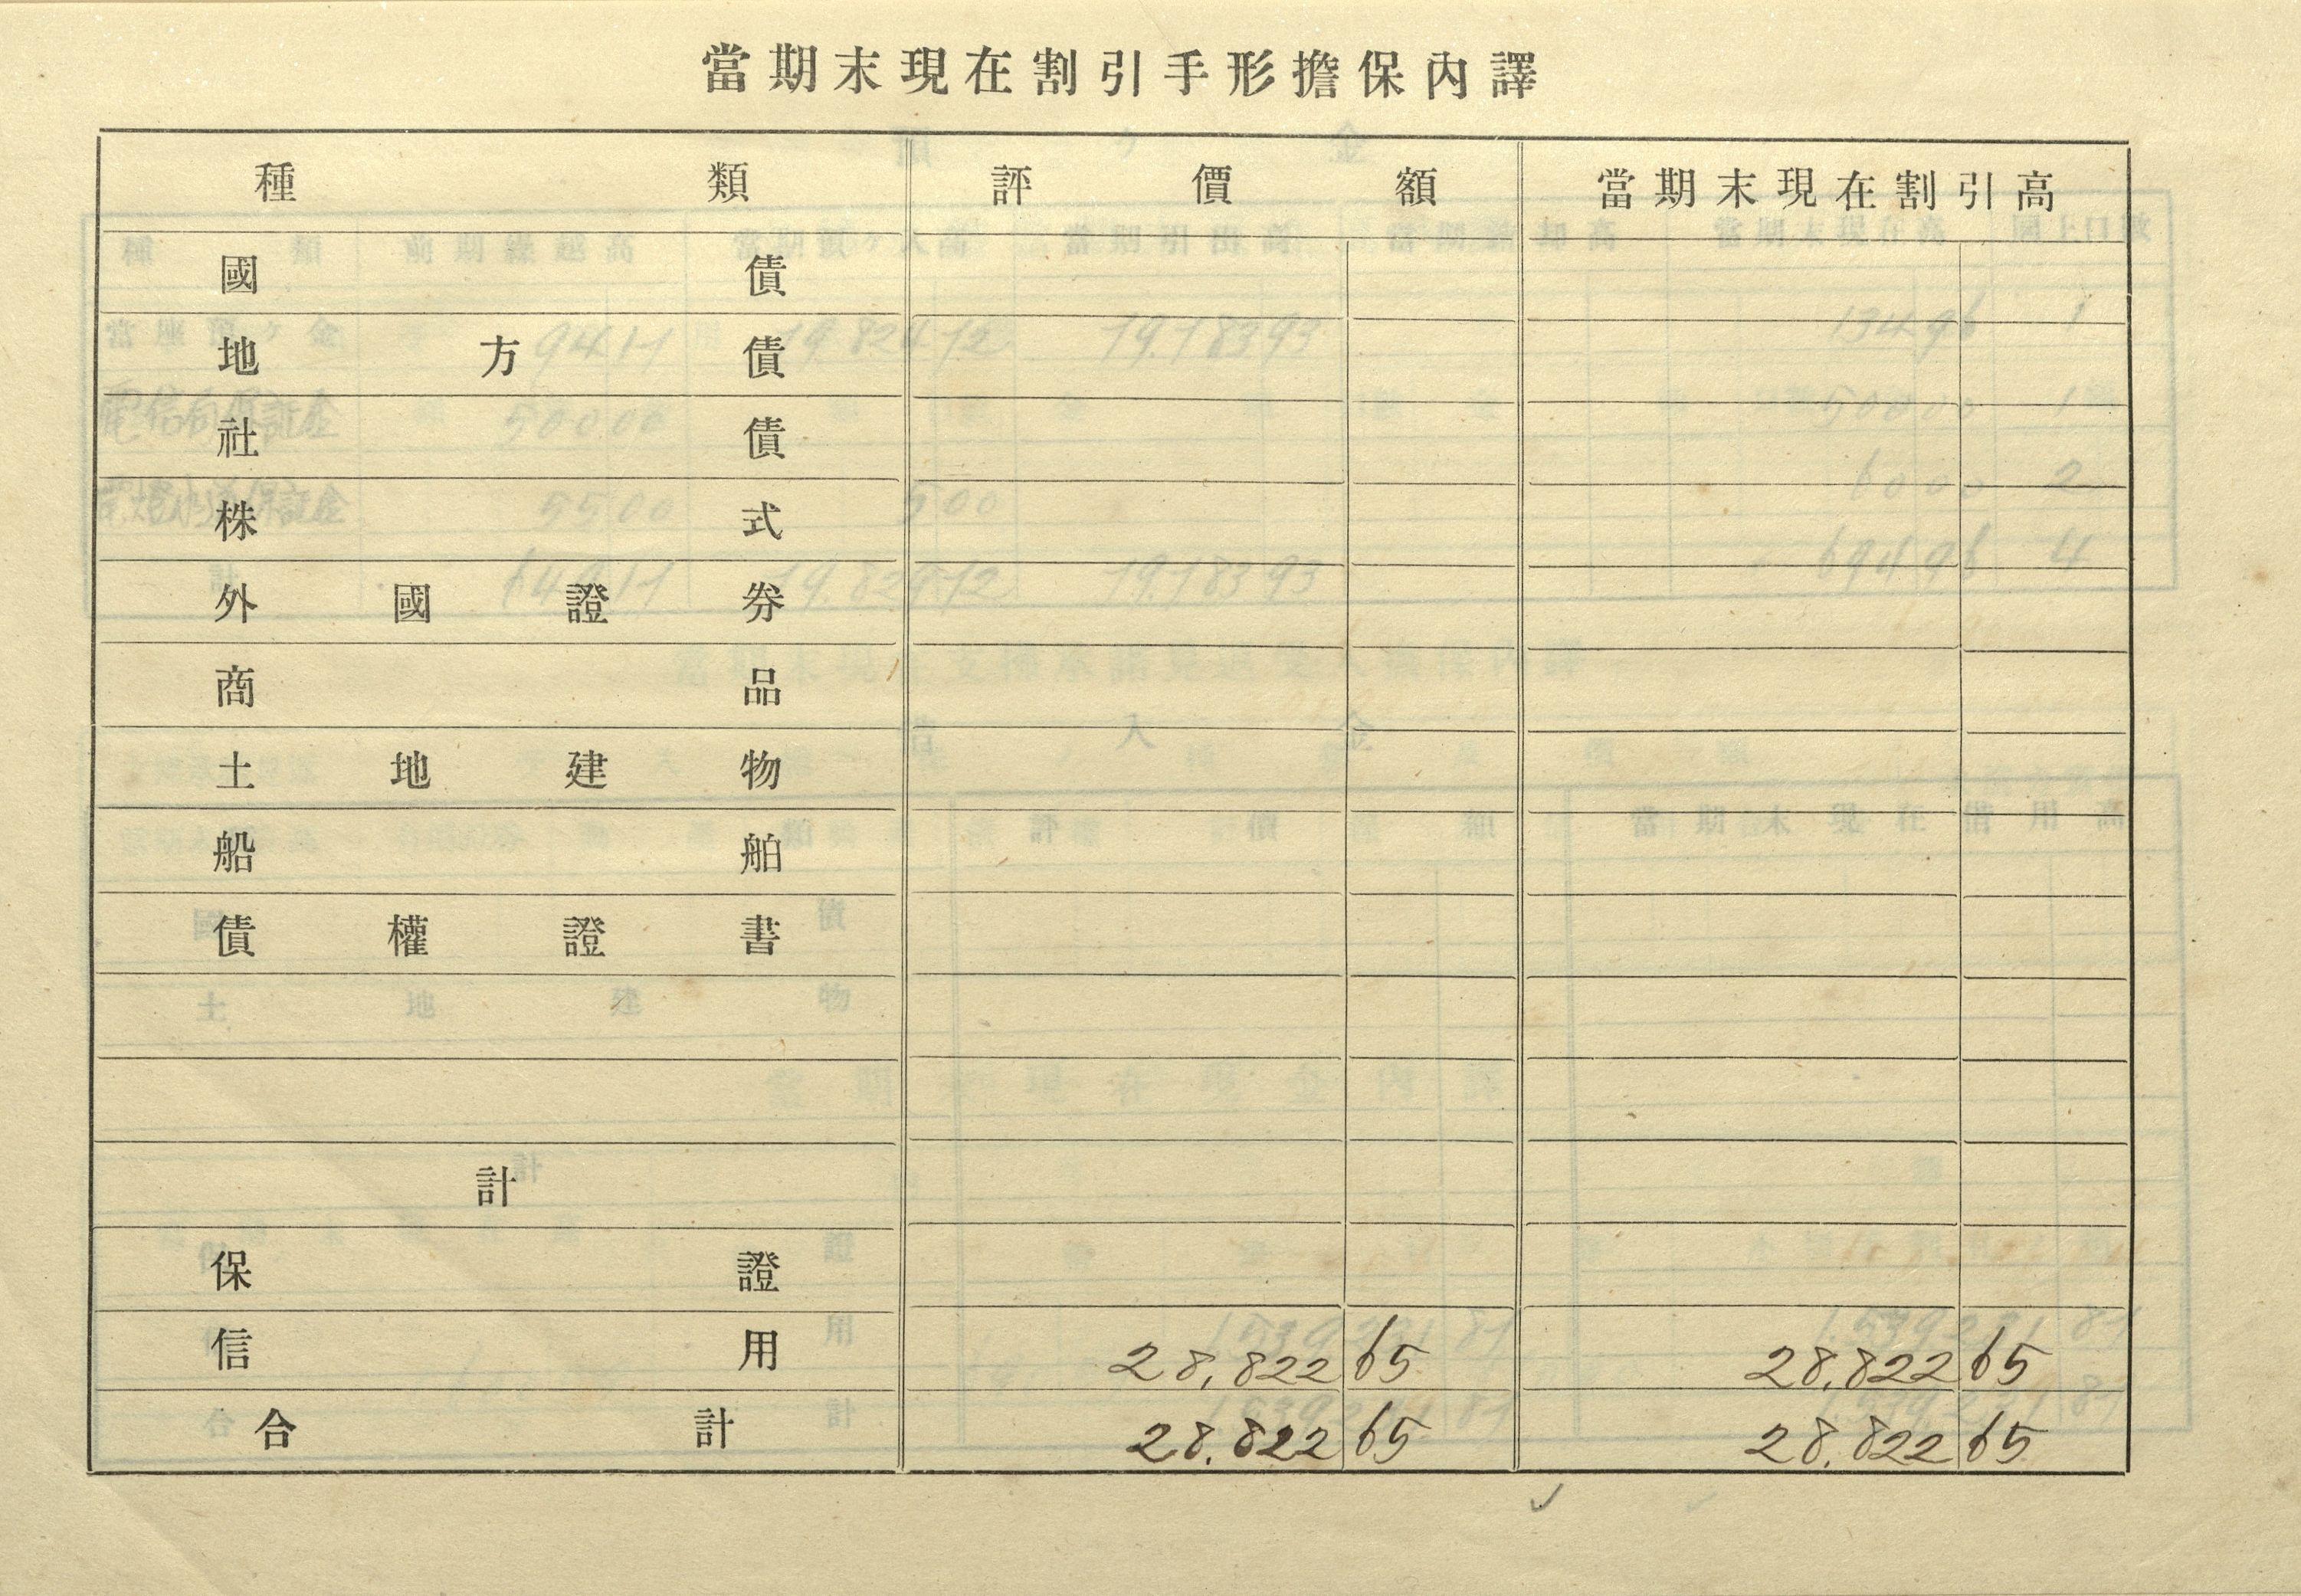 當期末現在割引手形擔保內譯
種類 評價額 當期末現在割引高
國債
地方債
社債
株式
外國證券
商品
土地建物
船舶
債權證書
計
保證
信用 28,822 65 28,822 65
合計 28,822 65 28,822 65